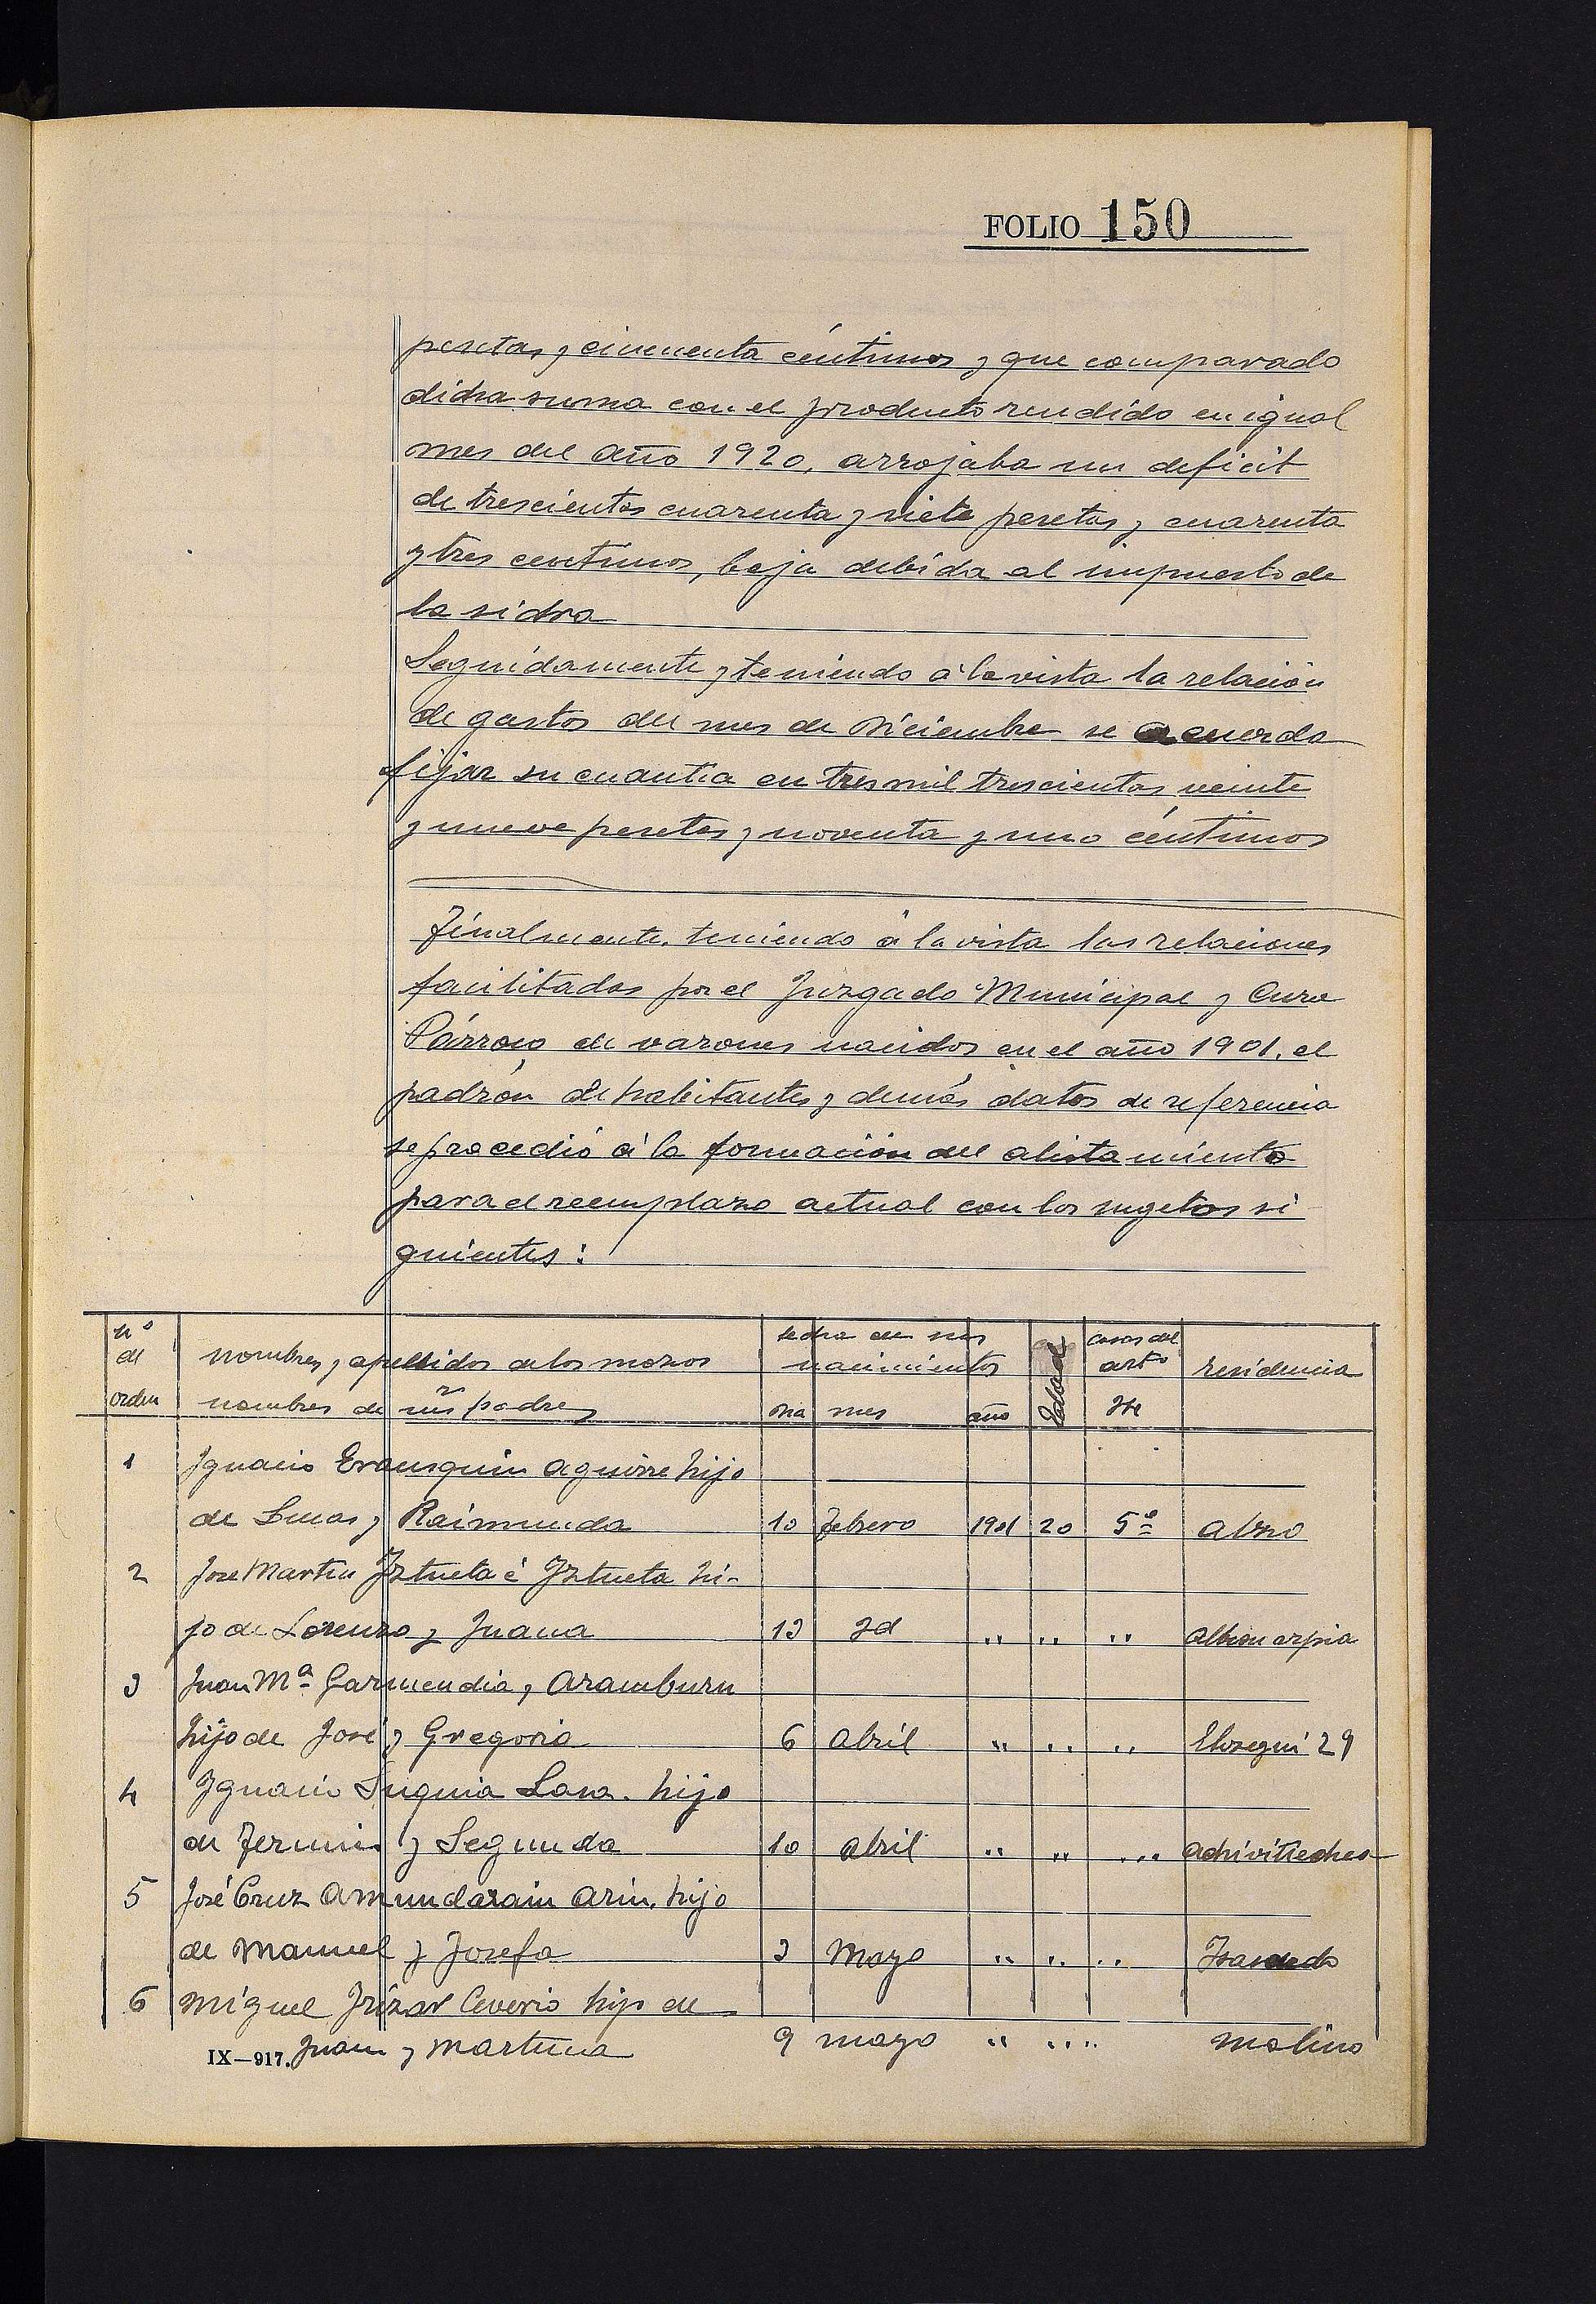 FOLIO 150
pesetas y cincuenta céntimos y que comparado
dicha suma con el producto rendido en igual
mes del año 1920, arrojaba un deficit
de trescientas cuarenta y siete pesetas y cuarenta
y tres centimos, baja debida al impuesto de
la sidra
Seguidamente y teniendo á la vista la relación
de gastos del mes de Diciembre se acuerda
fijar su cuantia en tres mil trescientas veinte
y nueve pesetas y noventa y uno céntimos
Finalmente, teniendo á la vista las relaciones
facilitadas por el Juzgado Municipal y Cura
Párroco de varones nacidos en el año 1901, el
padrón de habitantes y demás datos de referencia
se procedió á la formación del alistamiento
para el reemplazo actual con los sugetos si-
guientes:
nº de orden nombres y apellidos de los mozos nombres de sus padres fecha de sus nacimientos Dia mes año Edad casos del artº residencia
1 Ignacio Erausquin Aguirre hijo
de Lucas y Raimunda 10 febrero 1901 20 5º Abzo
2 Jose Martin Iztueta é Iztueta hi-
jo de Lorenzo y Juana 13 Id " " "
3 Juan Mª Garmendia y Aramburu
hijo de José y Gregoria 6 Abril " " " Elosegui 29
4 Ignacio Luquia Lasa hijo
de Fermin y Segunda 10 abril " " "
5 José Cruz Amundarain Arin, hijo
de Manuel y Josefa 3 Mayo " " "
6 Miguel Irizar Ceverio hijo de
Juan y Martina 9 mayo " " " Molino
IX—917.